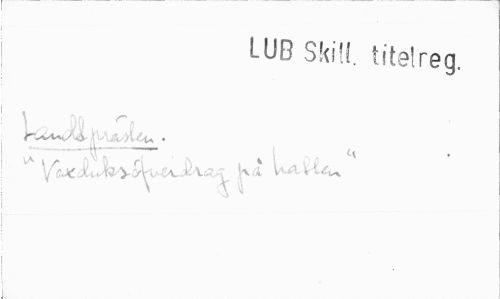 LUB Skill. titelreg.
Landsprästen.
"Vaxduksöfverdrag på hatten"